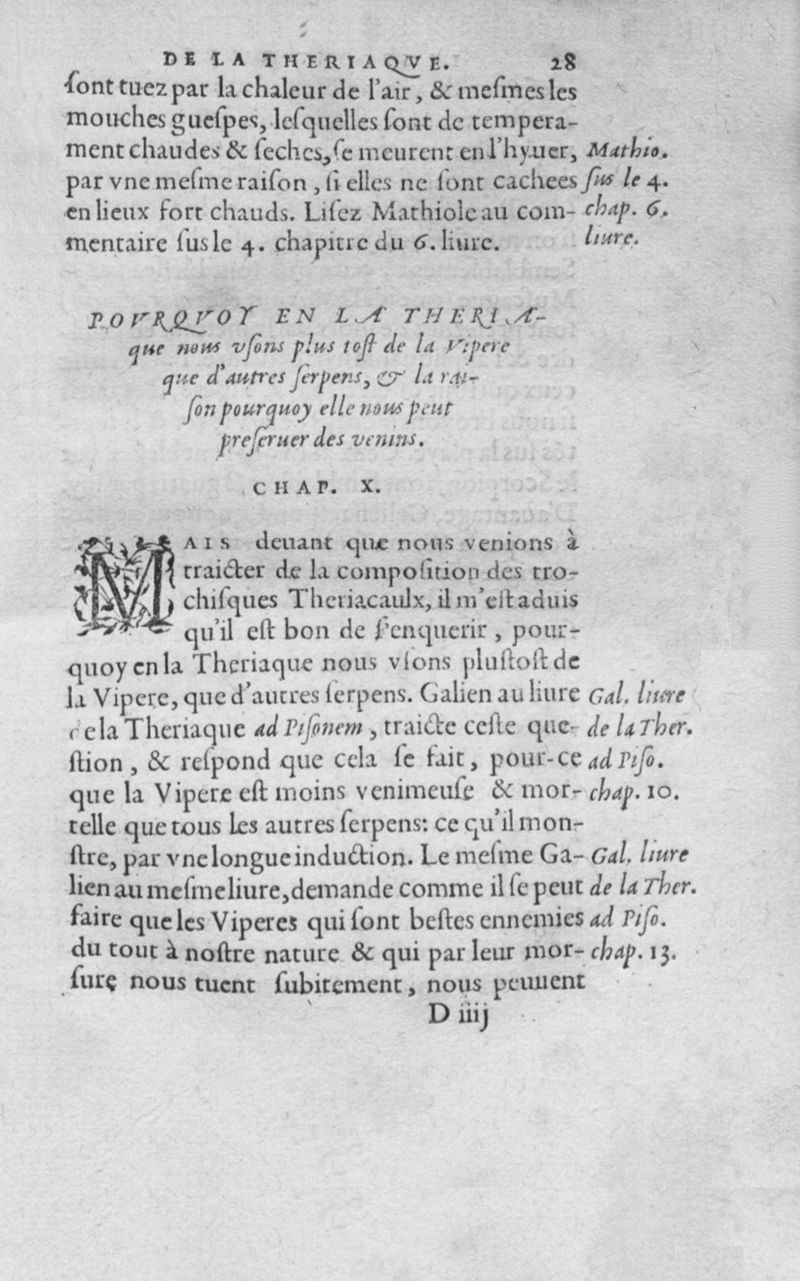 DE LA THERIAQVE. 28
ſont tuez par la chaleur de l'air, & meſmes les
mouches gueſpes, leſquelles ſont de tempera-
ment chaudes & ſeches, ſe meurent en l'hyuer, Mathio.
par vne meſme raiſon, ſi elles ne ſont cachees ſus le 4.
en lieux fort chauds. Liſez Mathiole au com- chap. 6.
mentaire ſus le 4. chapitre du 6. liure. liure.
POVRQVOY EN LA THERIA-
que nous vſons plus toſt de la Vipere
que d'autres ſerpens, & la rai-
ſon pourquoy elle nous peut
preſeruer des venins.
CHAP. X.
MAIS deuant que nous venions à
traicter de la compoſition des tro-
chiſques Theriacaulx, il m'eſt aduis
qu'il eſt bon de s'enquerir, pour-
quoy en la Theriaque nous vſons pluſtoſt de
la Vipere, que d'autres ſerpens. Galien au liure Gal. liure
de la Theriaque ad Piſonem, traicte ceſte que- de la Ther.
ſtion, & reſpond que cela ſe fait, pour-ce ad Piſo.
que la Vipere eſt moins venimeuſe & mor- chap. 10.
telle que tous les autres ſerpens: ce qu'il mon-
ſtre, par vne longue induction. Le meſme Ga- Gal. liure
lien au meſme liure, demande comme il ſe peut de la Ther.
faire que les Viperes qui ſont beſtes ennemies ad Piſo.
du tout à noſtre nature & qui par leur mor- chap. 13.
ſure nous tuent ſubitement, nous peuuent
D iiij